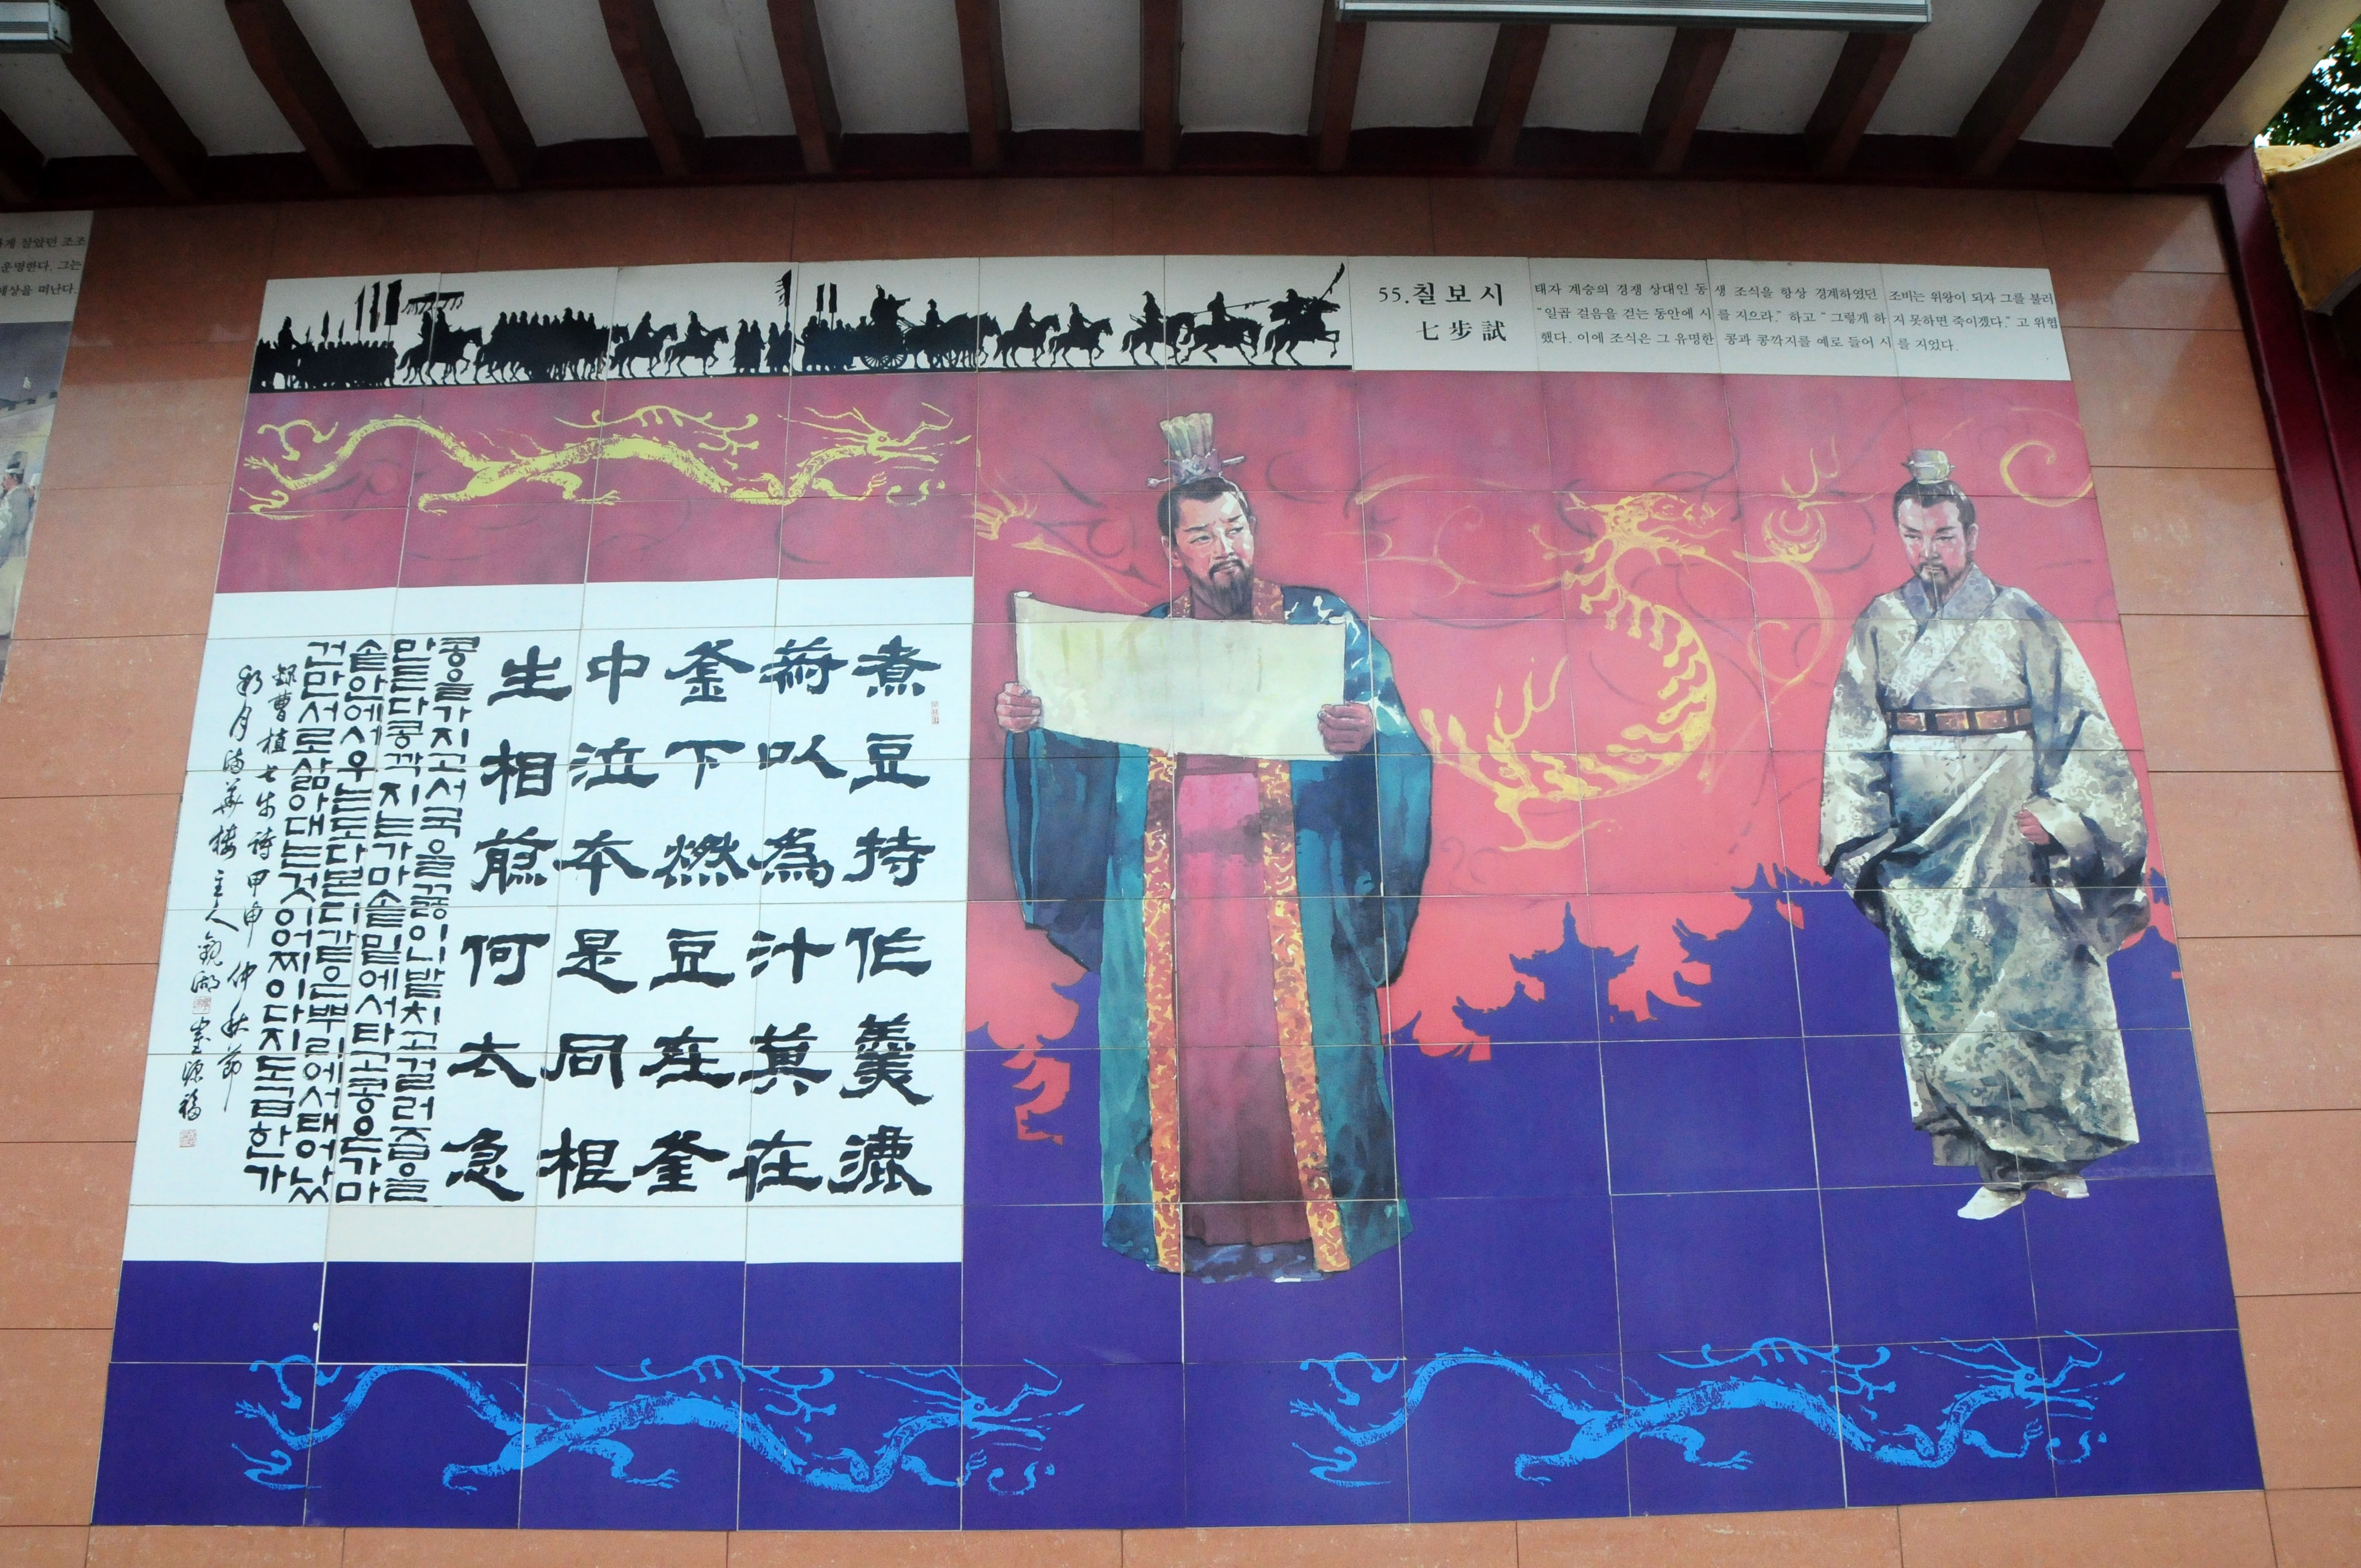 게 살았던 조조
운명한다. 그는
세상을 떠난다.
55.칠보시
七步試
태자 계승의 경쟁 상대인 동생 조식을 항상 경계하였던 조비는 위왕이 되자 그를 불러
“일곱 걸음을 걷는 동안에 시를 지으라.” 하고 “그렇게 하지 못하면 죽이겠다.”고 위협
했다. 이에 조식은 그 유명한 콩과 콩깍지를 예로 들어 시를 지었다.
煮豆持作羹漉
以為汁萁在
釜下燃豆在釜
中泣本是同根
生相煎何太急
콩을가지고서국을끓이니발치고걸러즙을
만든다콩깍지는가마솥밑에서타고콩은가마
솥안에서우는도다본디같은뿌리에서태어났
건만서로삶아대는것이어찌이다지도급한가
錄曹植七步詩甲申仲秋節
月滿華樓主人觀湖崔源福